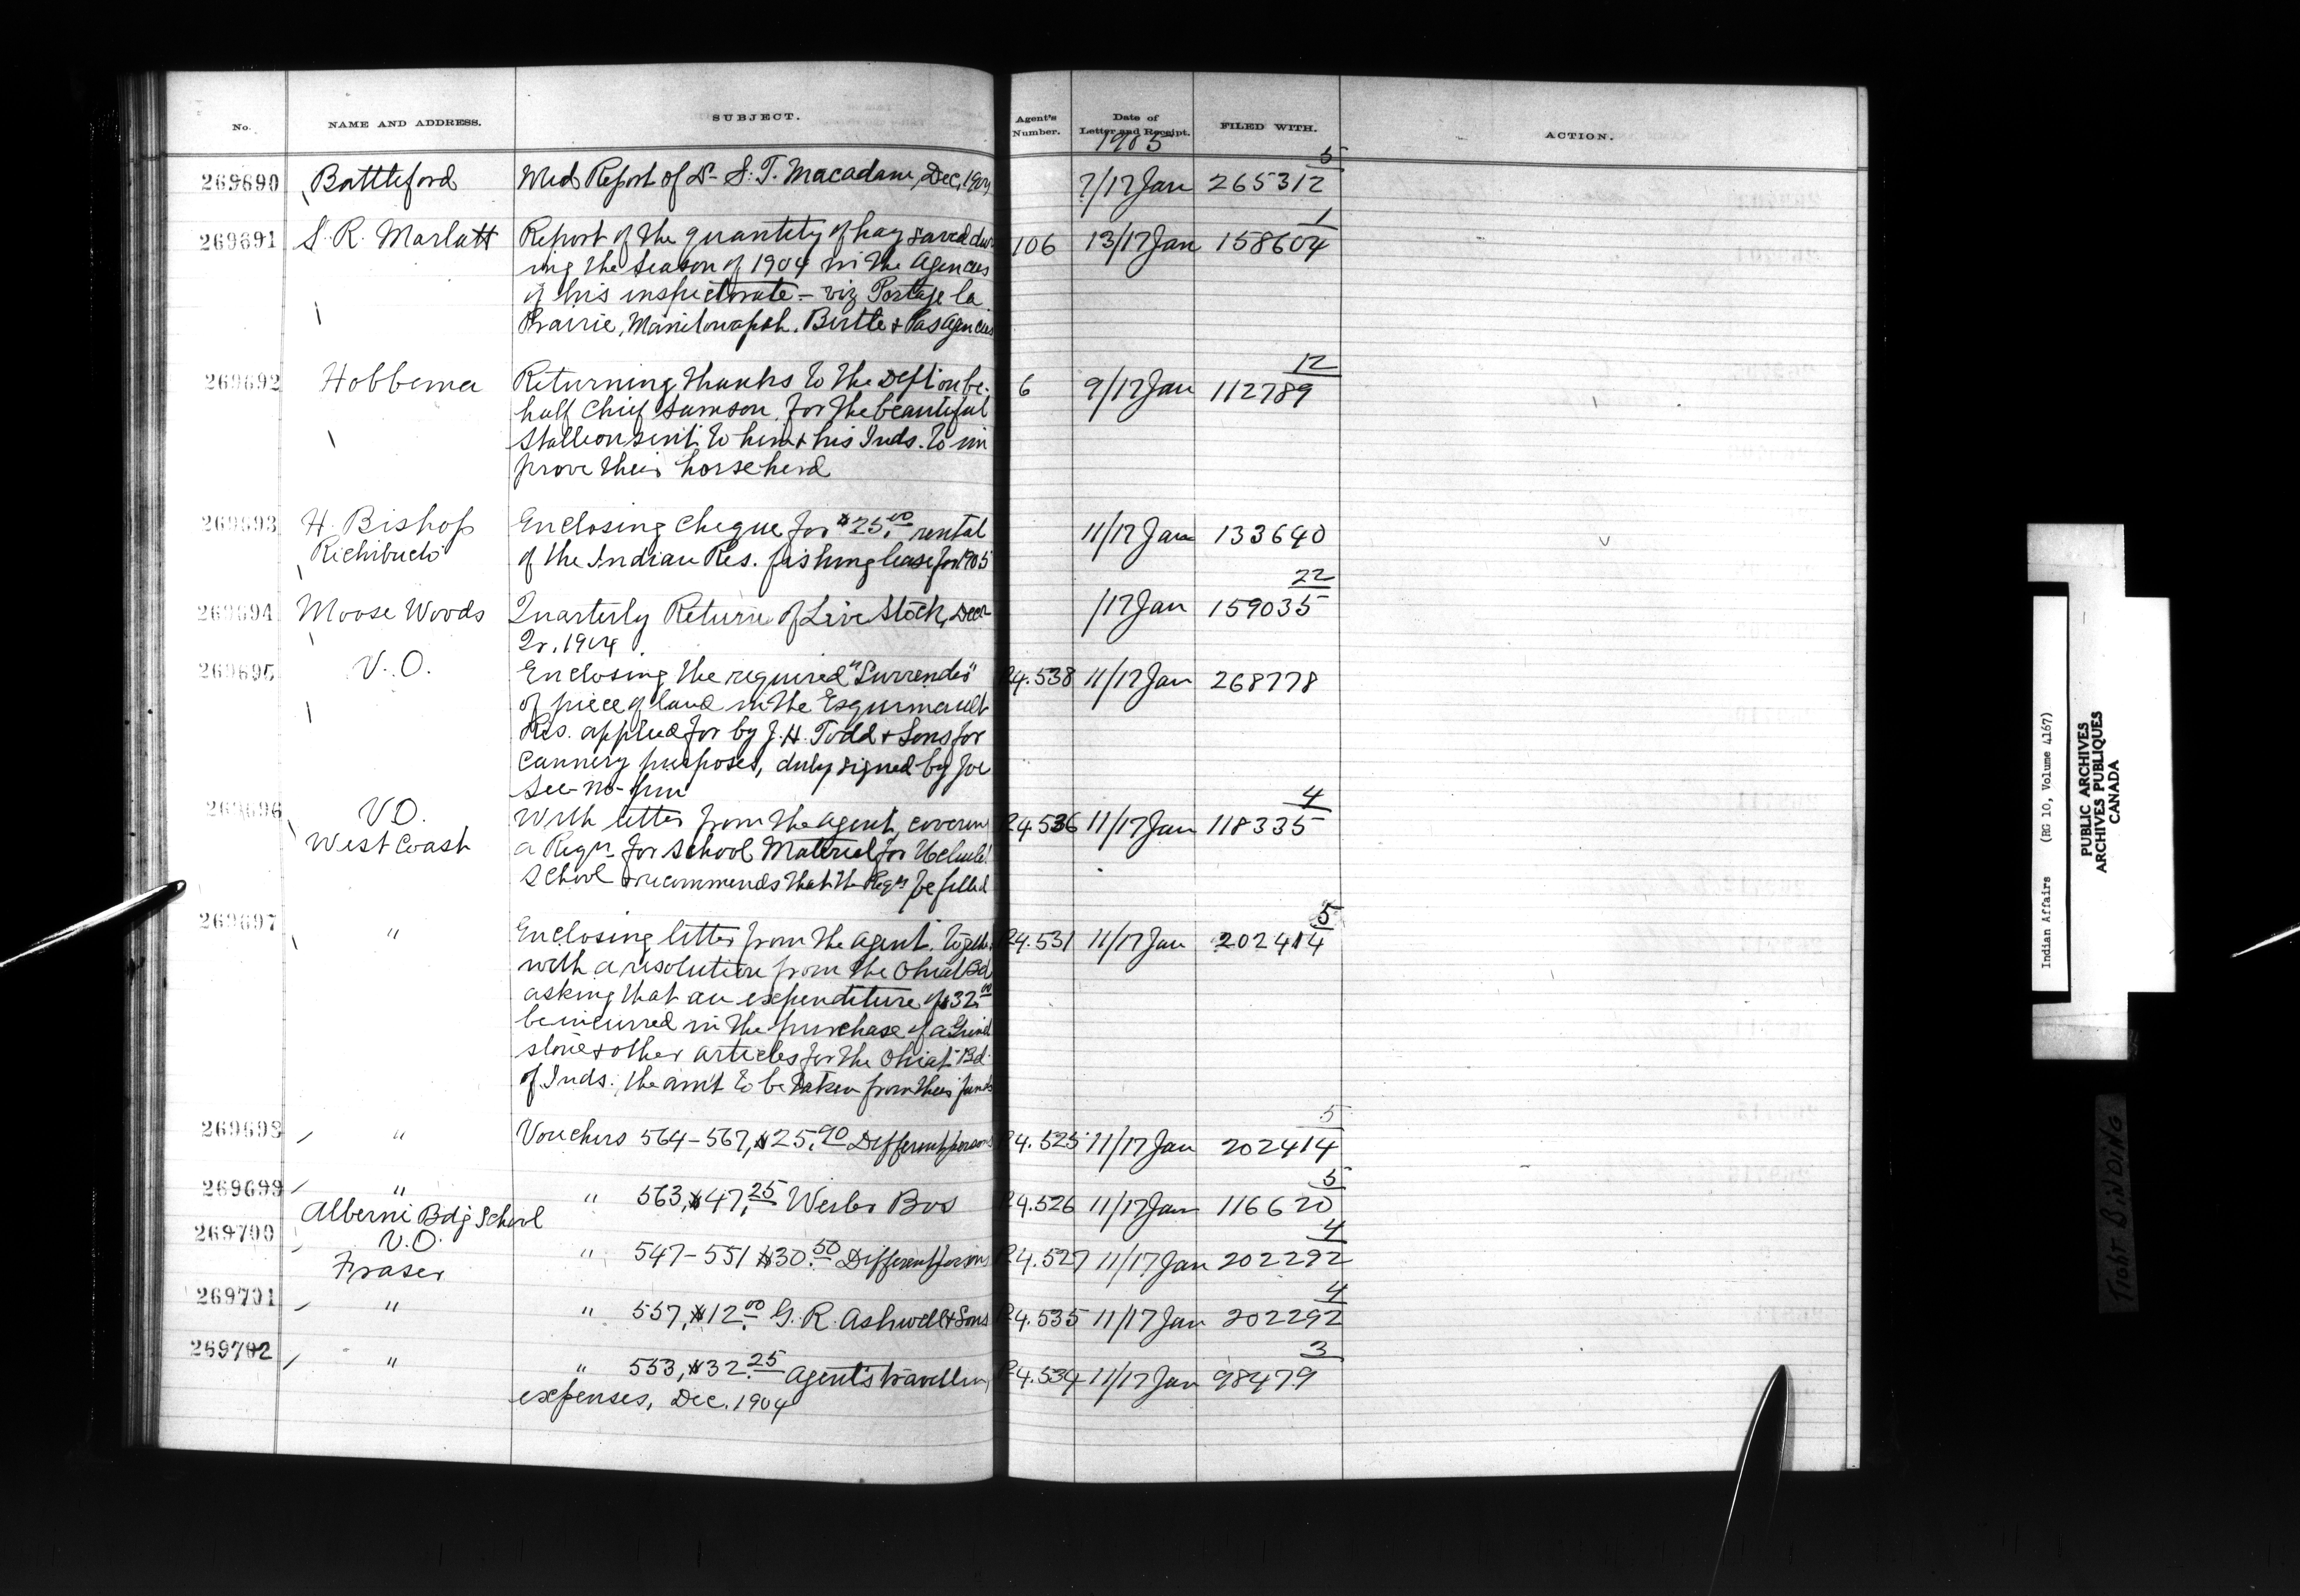 No. NAME AND ADDRESS. SUBJECT. Agent's Number. Date of Letter and Receipt. FILED WITH. ACTION.
1905
5
269690 Battleford Med Report of Dr. S. T. Macadam, Dec, 1904 7/17 Jan 265312
1
269691 S. R. Marlatt Report of the quantity of hay saved du- 106 13/17 Jan 158604
ring the season of 1904 in the Agencies
of his inspectorate - viz Portage la
Prairie, Manitowapah, Birtle & Pas Agencies
12
269692 Hobbema Returning thanks to the Dept on be- 6 9/17 Jan 112789
half Chief Samson, for the beautiful
stallion sent to him & his Inds. to im
prove their horse herd
269693 H. Bishop Enclosing cheque for $25.00 rental 11/17 Jan 133640
Richibucto of the Indian Res. fishing lease for 1905
22
269694 Moose Woods Quarterly Return of Live Stock, Decr /17 Jan 159035
Qr. 1904.
269695 V.O. Enclosing the required "Surrender" R4.538 11/17 Jan 268778
of piece of land in the Esquimault
Res. applied for by J. H. Todd & Sons for
Cannery purposes, duly signed by Joe
See-no-pun
4
269696 V.O. With letter from the Agent, coverin R4.536 11/17 Jan 118335
West Coast a Reqn. for School Material for Uclulet
School & recommends that the Reqn be filled
5
269697 " Enclosing letter from the Agent, togeth R4.531 11/17 Jan 202414
with a resolution from the Ohiat Bd
asking that an expenditure of $32.00
be incurred in the purchase of a Grind
stone & other articles for the Ohiat Bd.
of Inds; the amt to be taken from their funds
5
269698 " Vouchers 564-567, $25.90 Different persons R4.525 11/17 Jan 202414
5
269699 " " 563, $47.25 Weiler Bros R4.526 11/17 Jan 116620
Alberni Bdg School
4
269700 V.O. " 547-551 $30.50 Different persons R4.527 11/17 Jan 202292
Fraser
4
269701 " " 557, $12.00 G. R. Ashwell & Sons R4.535 11/17 Jan 202292
3
269702 " " 553, $32.25 Agent's travellin R4.534 11/17 Jan 98479
expenses, Dec. 1904
Indian Affairs (RG 10, Volume 4167)
PUBLIC ARCHIVES
ARCHIVES PUBLIQUES
CANADA
TIGHT BINDING